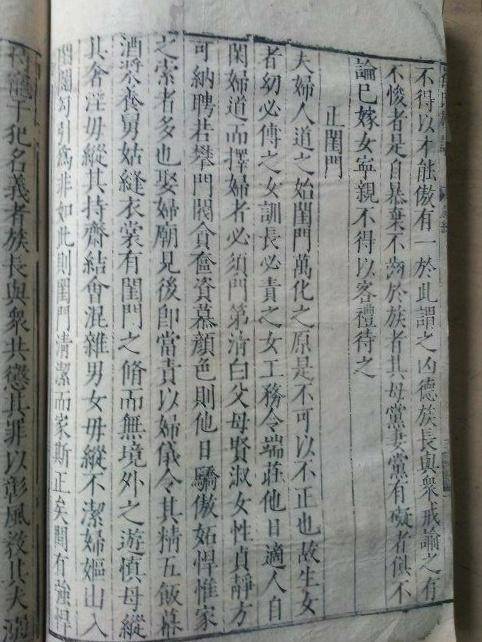 不得以才能傲有一於此謂之凶德族長與衆戒諭之有
不悛者是自暴棄不齒於族者其母黨妻黨有礙者俱不
論已嫁女寧親不得以客禮待之
正閨門
夫婦人道之始閨門萬化之原是不可以不正也故生女
者幼必傳之女訓長必責之女工務令端莊他日適人自
閑婦道而擇婦者必須門第清白父母賢淑女性貞靜方
可納聘若攀門閥貪奩資慕顏色則他日驕傲妬悍惟家
之索者多也娶婦廟見後卽當責以婦儀令其精五飯冪
酒漿養舅姑縫衣裳有閨門之脩而無境外之遊慎毋縱
其奢淫毋縱其持齋結會混雜男女毋縱不潔婦嫗出入
閨閫勾引爲非如此則閨門清潔而家斯正矣間有強悍
恃寵干犯名義者族長與衆共懲其罪以彰風教其夫溺